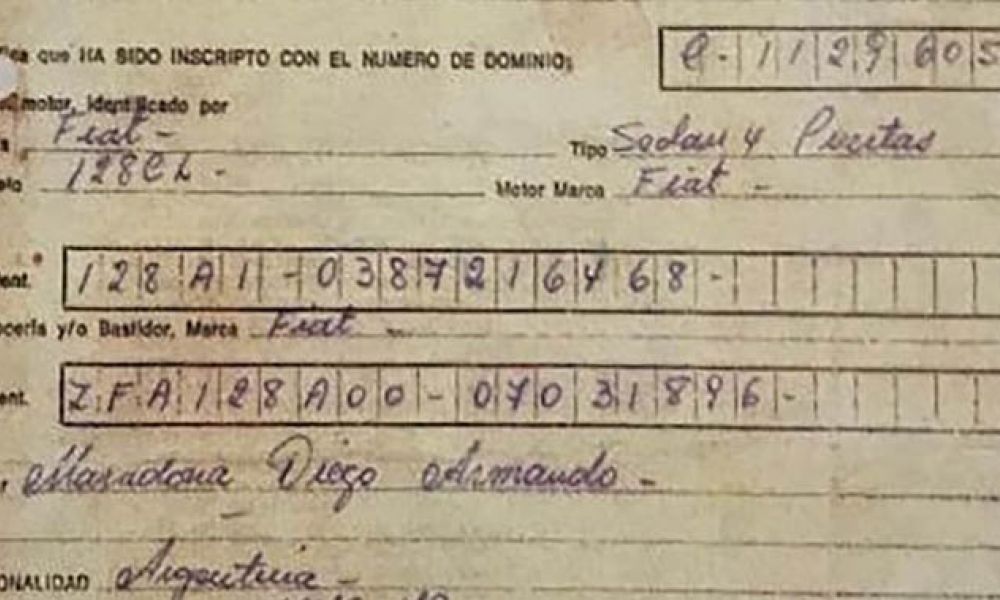 que HA SIDO INSCRIPTO CON EL NUMERO DE DOMINIO: C-1129605
motor, identificado por
Fiat - Tipo Sedan 4 Puertas
128CL - Motor Marca Fiat -
128A1-0387216468-
y/o Bastidor, Marca Fiat -
ZFA128A00-07031896-
Maradona Diego Armando -
Argentina -